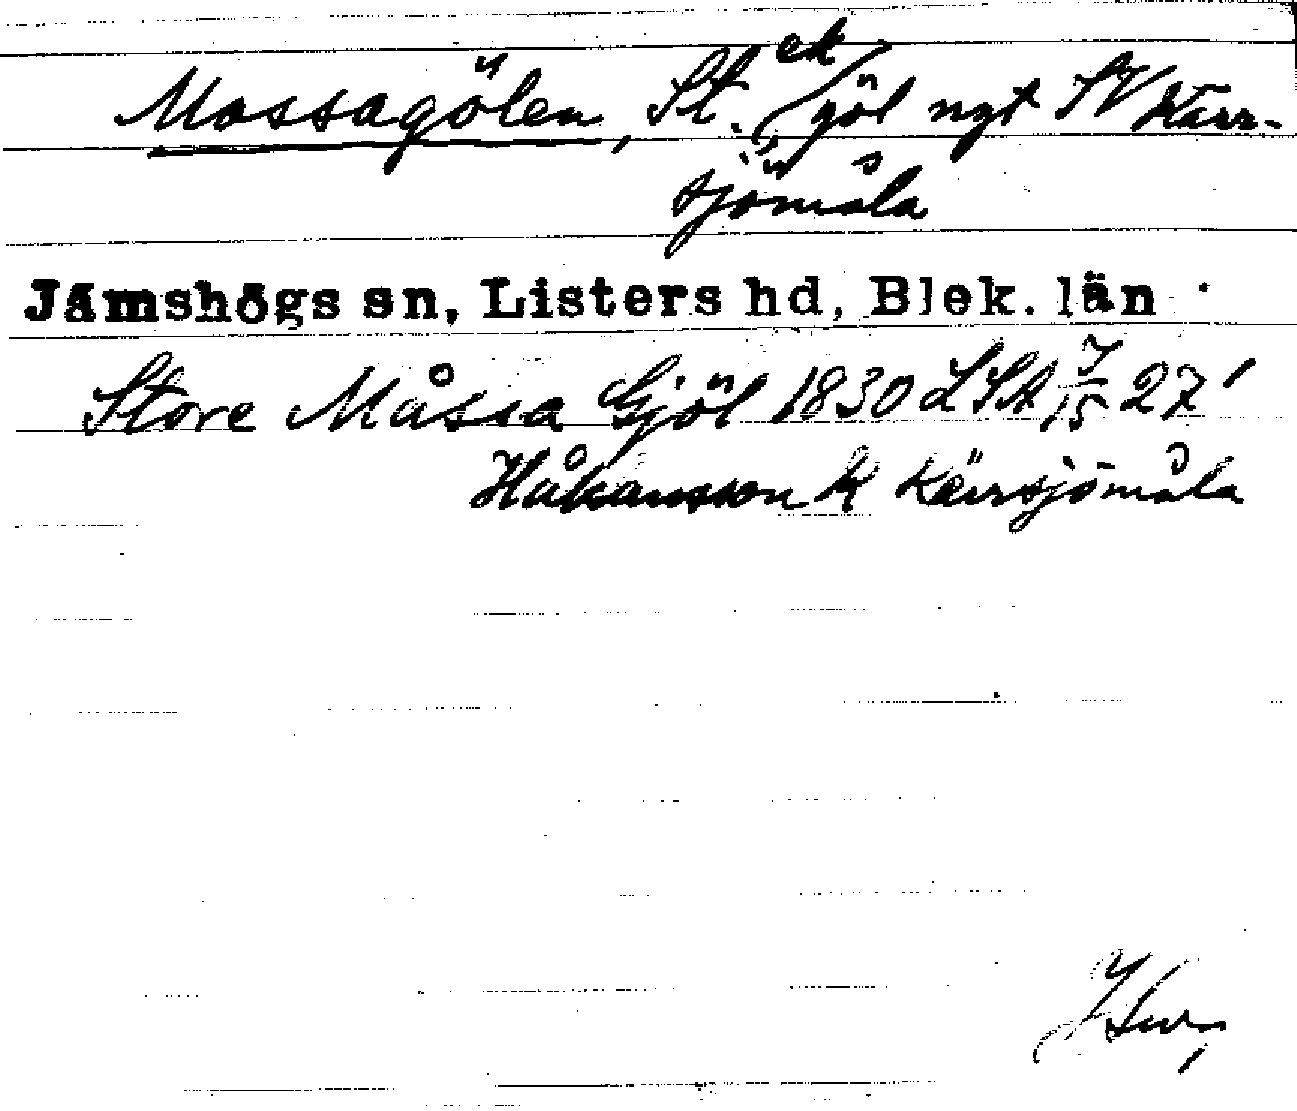 Mossagölen, St. ek / göl nyt SV Kärr-
sjömåla
Jämshögs sn, Listers hd, Blek. län
Store Måssa Gjöl 1830 LSA 7/15 27'
Håkansson K Kärrsjömåla